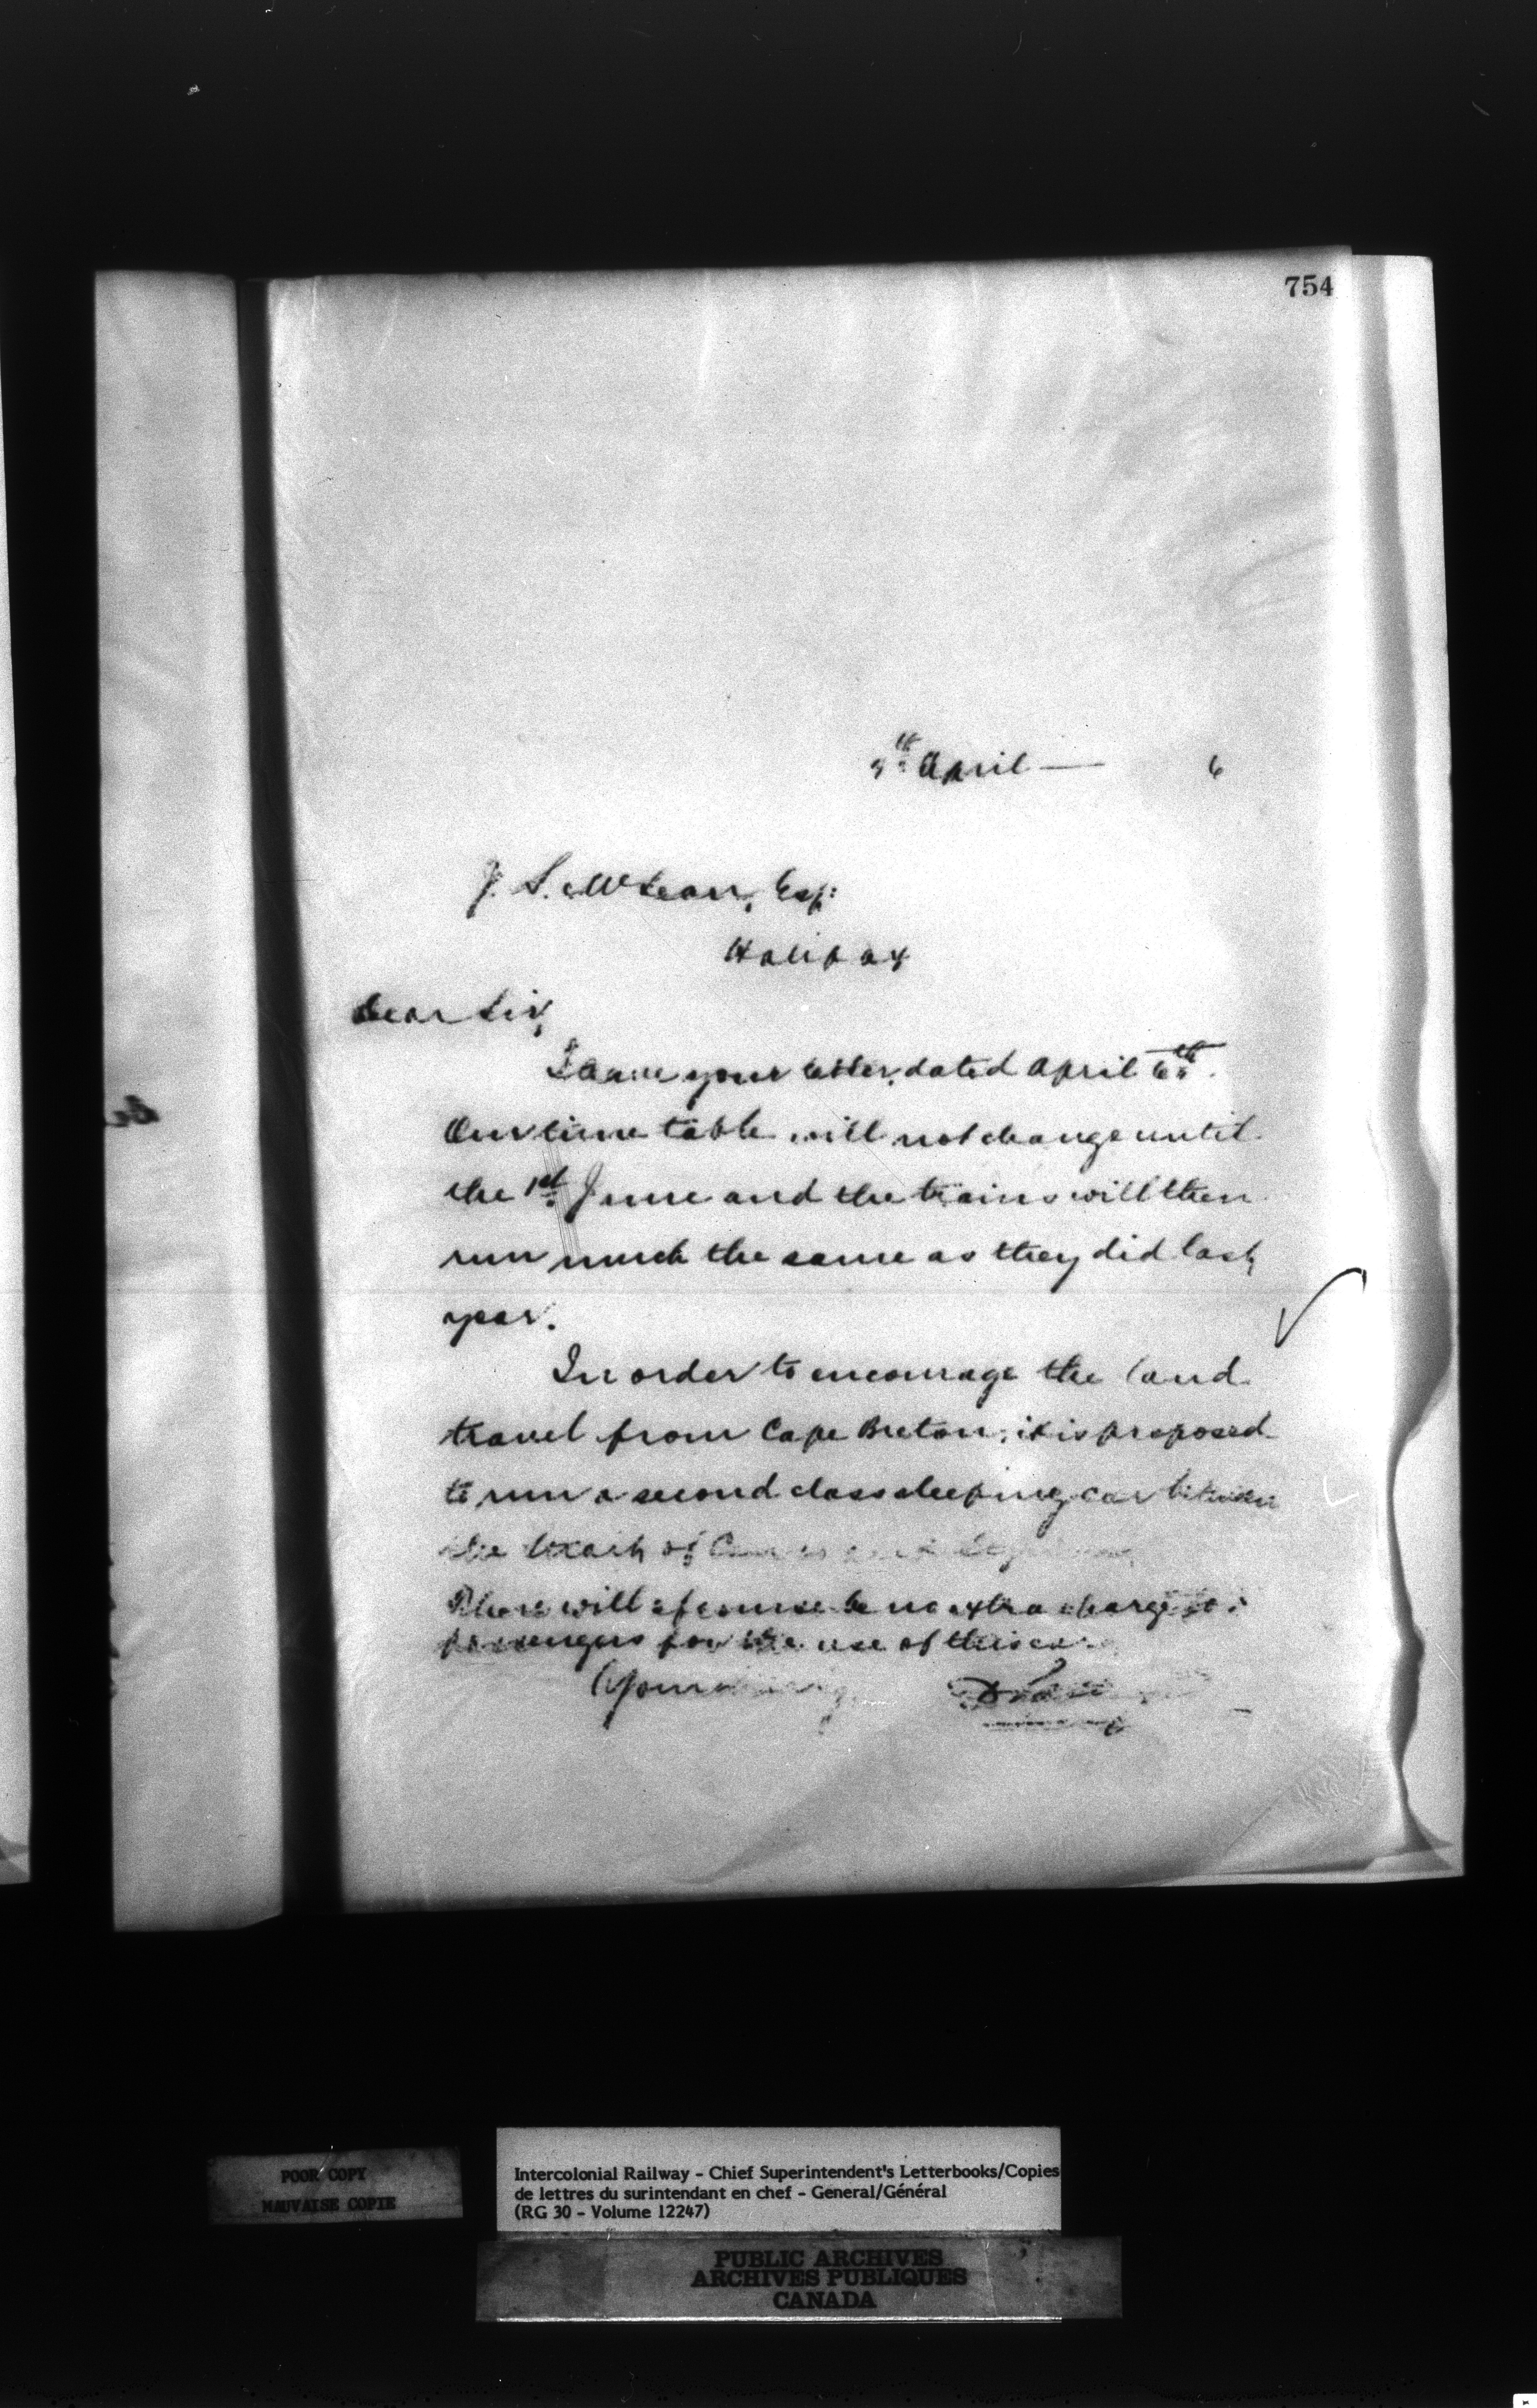 754
April — 6
J. S. McLean, Esq:
Halifax
Dear Sir,
I have your letter, dated April 6th.
Our time table will not change until
the 1st June and the trains will then
run much the same as they did last
year.
In order to encourage the land
travel from Cape Breton, it is proposed
to run a second class sleeping car between
the Strait of
There will of course be no extra charge to
passengers for the use of this car
Yours
POOR COPY
MAUVAISE COPIE
Intercolonial Railway - Chief Superintendent's Letterbooks/Copies
de lettres du surintendant en chef - General/Général
(RG 30 - Volume 12247)
PUBLIC ARCHIVES
ARCHIVES PUBLIQUES
CANADA